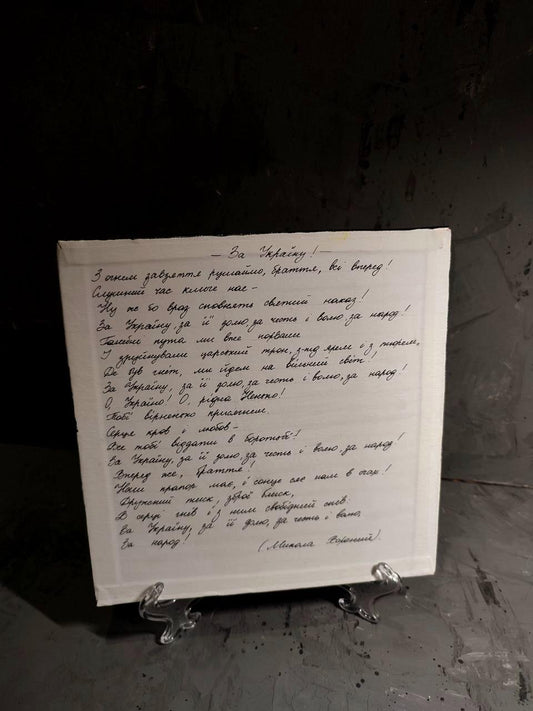 — За Україну! —
З огнем завзяття рушаймо, браття, всі вперед!
Слушний час кличе нас –
Ну ж бо враз сповнять святий наказ!
За Україну, за її долю, за честь і волю, за народ!
Ганебні пута ми вже порвали
І зруйнували царський трон, з-під ярем і з тюрем,
Де був гніт, ми йдем на вільний світ!
За Україну, за її долю, за честь і волю, за народ!
О, Україно! О, рідна Ненько!
Тобі вірненько присягнем.
Серця кров і любов –
Все тобі віддати в боротьбі!
За Україну, за її долю, за честь і волю, за народ!
Вперед же, браття!
Наш прапор має, і сонце сяє нам в очах!
Дружний тиск, зброї блиск,
В серці гнів і з ним свобідний спів:
За Україну, за її долю, за честь і волю,
За народ!
(Микола Вороний).